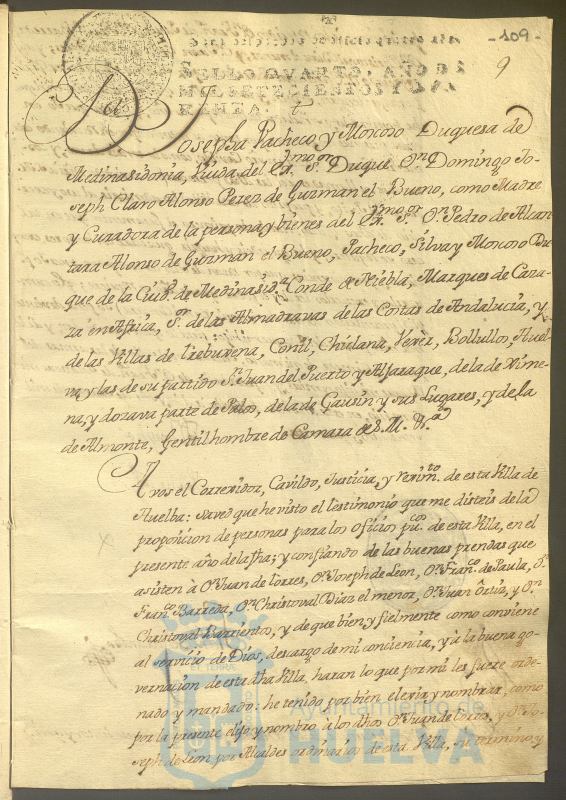 -109-
9
SELLO QVARTO, AÑO DE
MIL SETECIENTOS Y
Da Josepha Pacheco y Moscoso Duquesa de
Medinasidonia, Viuda del Exmo. Sor. Duque Dn. Domingo Jo-
seph Claro Alonso Perez de Guzman el Bueno, como Madre
y Curadora de la persona y bienes del Exmo. Sor. Dn. Pedro de Alcan
tara Alonso de Guzman el Bueno, Pacheco, Silva y Moscoso Du
que de la Ciud. de Medinasida. Conde de Niebla, Marques de Caza
za en Africa, Sr. de las Almadravas de las Costas de Andalucia, y
de las Villas de Trebuxena, Conil, Chiclana, Vexèr, Bollullos, Huel
va, y las de su partido Sn. Juan del Puerto y Aljaraque, de la de Xime
na, y dozava parte de Palos, de la de Gausin y sus Lugares, y de la
de Almonte, Gentilhombre de Camara de S. M. &a.
A vos el Corregidor, Cavildo, Justicia, y Regimto. de esta Villa de
Huelba: saved que he visto el testimonio que me disteis de la
proposicion de personas para los oficios pucos. de esta Villa, en el
presente año de la fha; y confiando de las buenas prendas que
asisten à Dn. Juan de torres, Dn. Joseph de Leon, Dn. Franco. de Paula, Dn.
Franco. Barreda, Dn. Christoval Diaz el menor, Dn. Juan Ortiz, y Dn.
Christoval Barrientos, y de que bien y fielmente como conviene
al servicio de Dios, descargo de mi conciencia, y à la buena go-
vernacion de esta dha Villa, haran lo que por mi les fuere orde-
nado y mandado: he tenido por bien elexir y nombrar, como
por la presente elijo y nombro à los dhos Dn. Juan de torres, y Dn. Jo-
seph de Leon por Alcaldes ordinarios de esta Villa, su termino y
Ayuntamiento de
HUELVA